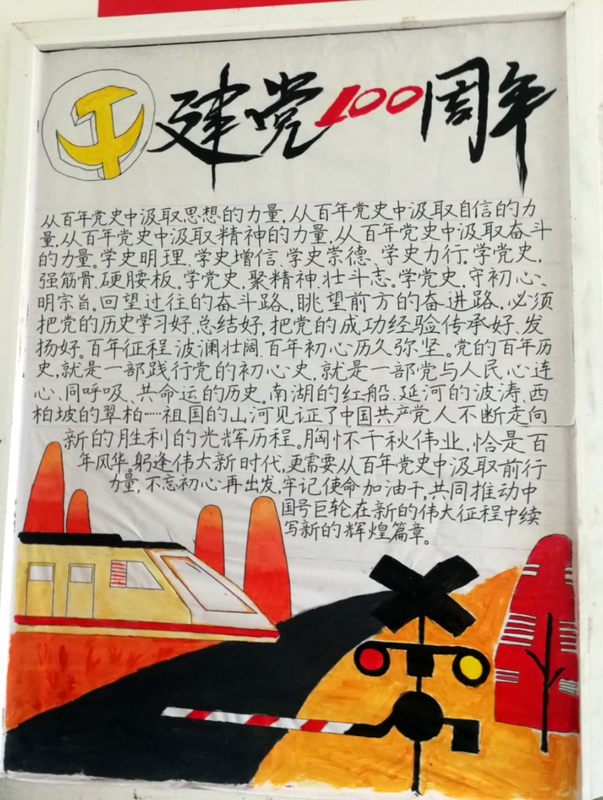 建党100周年
从百年党史中汲取思想的力量,从百年党史中汲取自信的力
量,从百年党史中汲取精神的力量,从百年党史中汲取奋斗
的力量。学史明理、学史增信、学史崇德、学史力行。学党史,
强筋骨、硬腰板。学党史、聚精神、壮斗志。学党史,守初心、
明宗旨。回望过往的奋斗路,眺望前方的奋进路,必须
把党的历史学习好、总结好,把党的成功经验传承好、发
扬好。百年征程波澜壮阔,百年初心历久弥坚。党的百年历
史,就是一部践行党的初心史,就是一部党与人民心连
心、同呼吸、共命运的历史。南湖的红船、延河的波涛、西
柏坡的翠柏……祖国的山河见证了中国共产党人不断走向
新的胜利的光辉历程。胸怀千秋伟业,恰是百
年风华。躬逢伟大新时代,更需要从百年党史中汲取前行
力量,不忘初心再出发,牢记使命加油干,共同推动中
国号巨轮在新的伟大征程中续
写新的辉煌篇章。